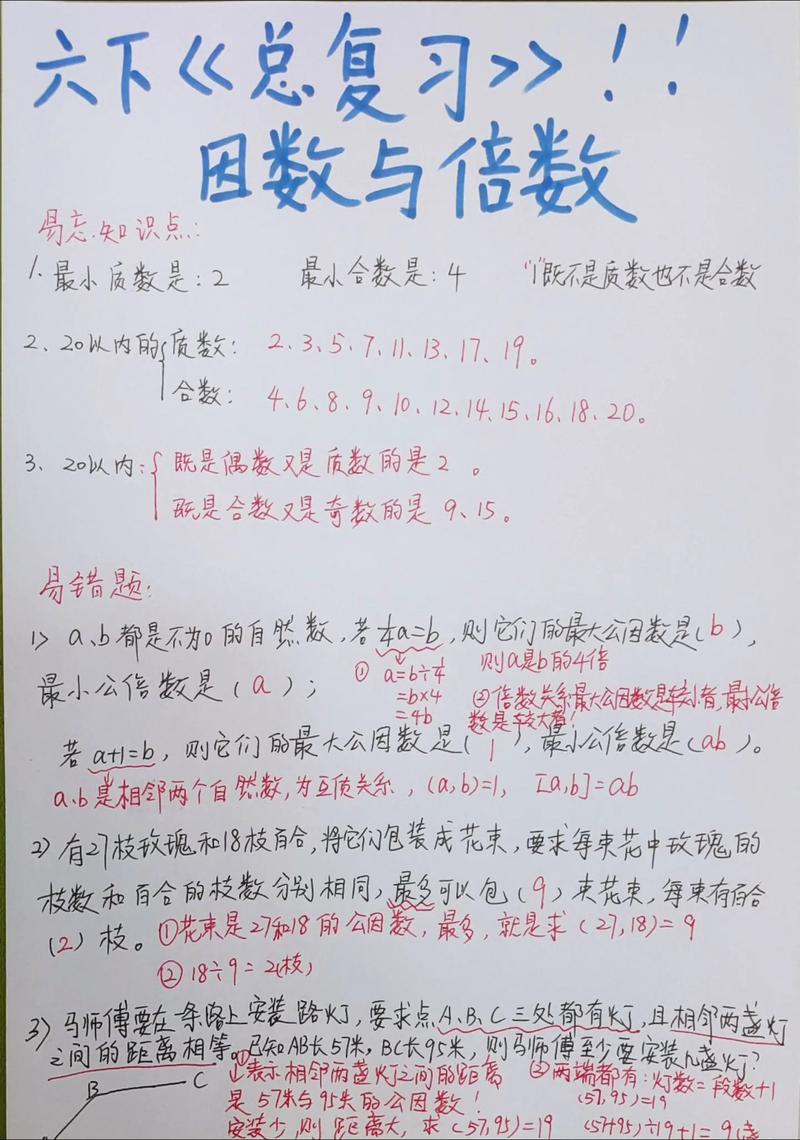 六下《总复习》！！
因数与倍数
易忘知识点：
1. 最小质数是：2 最小合数是：4 "1"既不是质数也不是合数
2、20以内的{质数： 2、3、5、7、11、13、17、19。
合数： 4、6、8、9、10、12、14、15、16、18、20。
3、20以内：{既是偶数又是质数的是2。
既是合数又是奇数的是 9、15。
易错题：
1> a、b都是不为0的自然数，若¼a=b，则它们的最大公因数是（b），
① a=b÷¼ 则a是b的4倍
最小公倍数是（a）；
=b×4 ②倍数关系最大公因数是较小者，最小公倍
=4b 数是较大者！
若a+1=b，则它们的最大公因数是（1），最小公倍数是（ab）。
a、b是相邻两个自然数，为互质关系，(a,b)=1， [a,b]=ab
2) 有27枝玫瑰和18枝百合，将它们包装成花束，要求每束花中玫瑰的
枝数和百合的枝数分别相同，最多可以包（9）束花束，每束有百合
（2）枝。①花束是27和18的公因数，最多，就是求（27,18）=9
②18÷9=2(枝)
3) 马师傅要在一条路上安装路灯，要求点A、B、C三处都有灯，且相邻两盏灯
之间的距离相等。已知AB长57米，BC长95米，则马师傅至少要安装几盏灯？
B C ①表示相邻两盏灯之间的距离 ②两端都有：灯数=段数+1
是57米与95米的公因数！ (57,95)=19
安装少，则距离大，求（57,95）=19 (57+95)÷19+1=9(盏